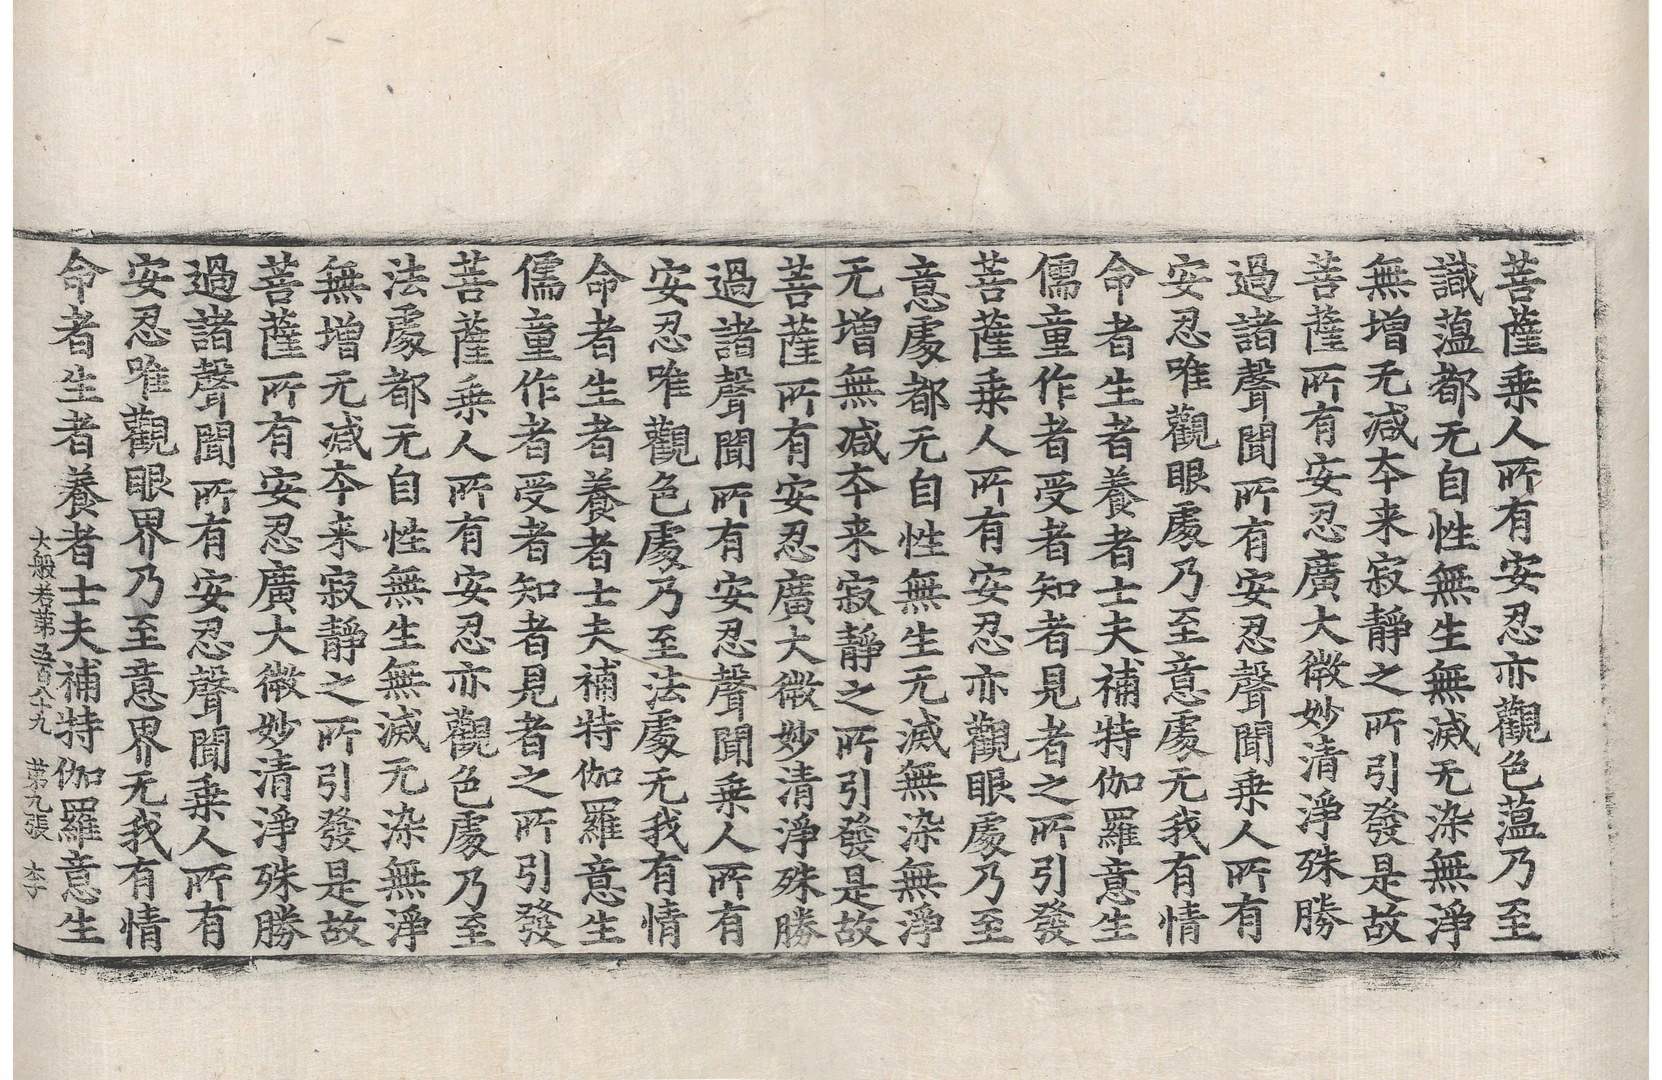 菩薩乗人所有安忍亦觀色藴乃至
識藴都无自性無生無滅无染無淨
無增无減本来寂靜之所引發是故
菩薩所有安忍廣大微妙清淨殊勝
過諸聲聞所有安忍聲聞乗人所有
安忍唯觀眼處乃至意處无我有情
命者生者養者士夫補特伽羅意生
儒童作者受者知者見者之所引發
菩薩乗人所有安忍亦觀眼處乃至
意處都无自性無生无滅無染無淨
无增無減本来寂靜之所引發是故
菩薩所有安忍廣大微妙清淨殊勝
過諸聲聞所有安忍聲聞乗人所有
安忍唯觀色處乃至法處无我有情
命者生者養者士夫補特伽羅意生
儒童作者受者知者見者之所引發
菩薩乗人所有安忍亦觀色處乃至
法處都无自性無生無滅无染無淨
無增无減本来寂靜之所引發是故
菩薩所有安忍廣大微妙清淨殊勝
過諸聲聞所有安忍聲聞乗人所有
安忍唯觀眼界乃至意界无我有情
命者生者養者士夫補特伽羅意生
大般若第五百八十九　第九張　李